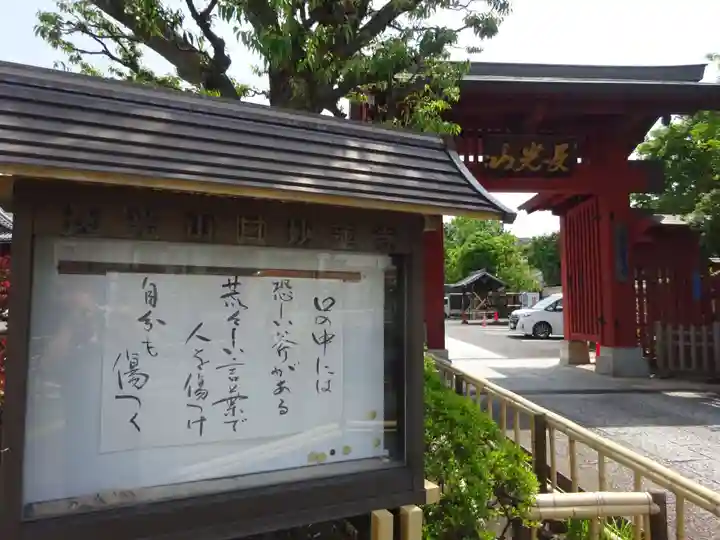 長光山
長光山日妙蓮寺
口の中には
恐しい斧がある
荒々しい言葉で
人を傷つけ
自分も傷つく